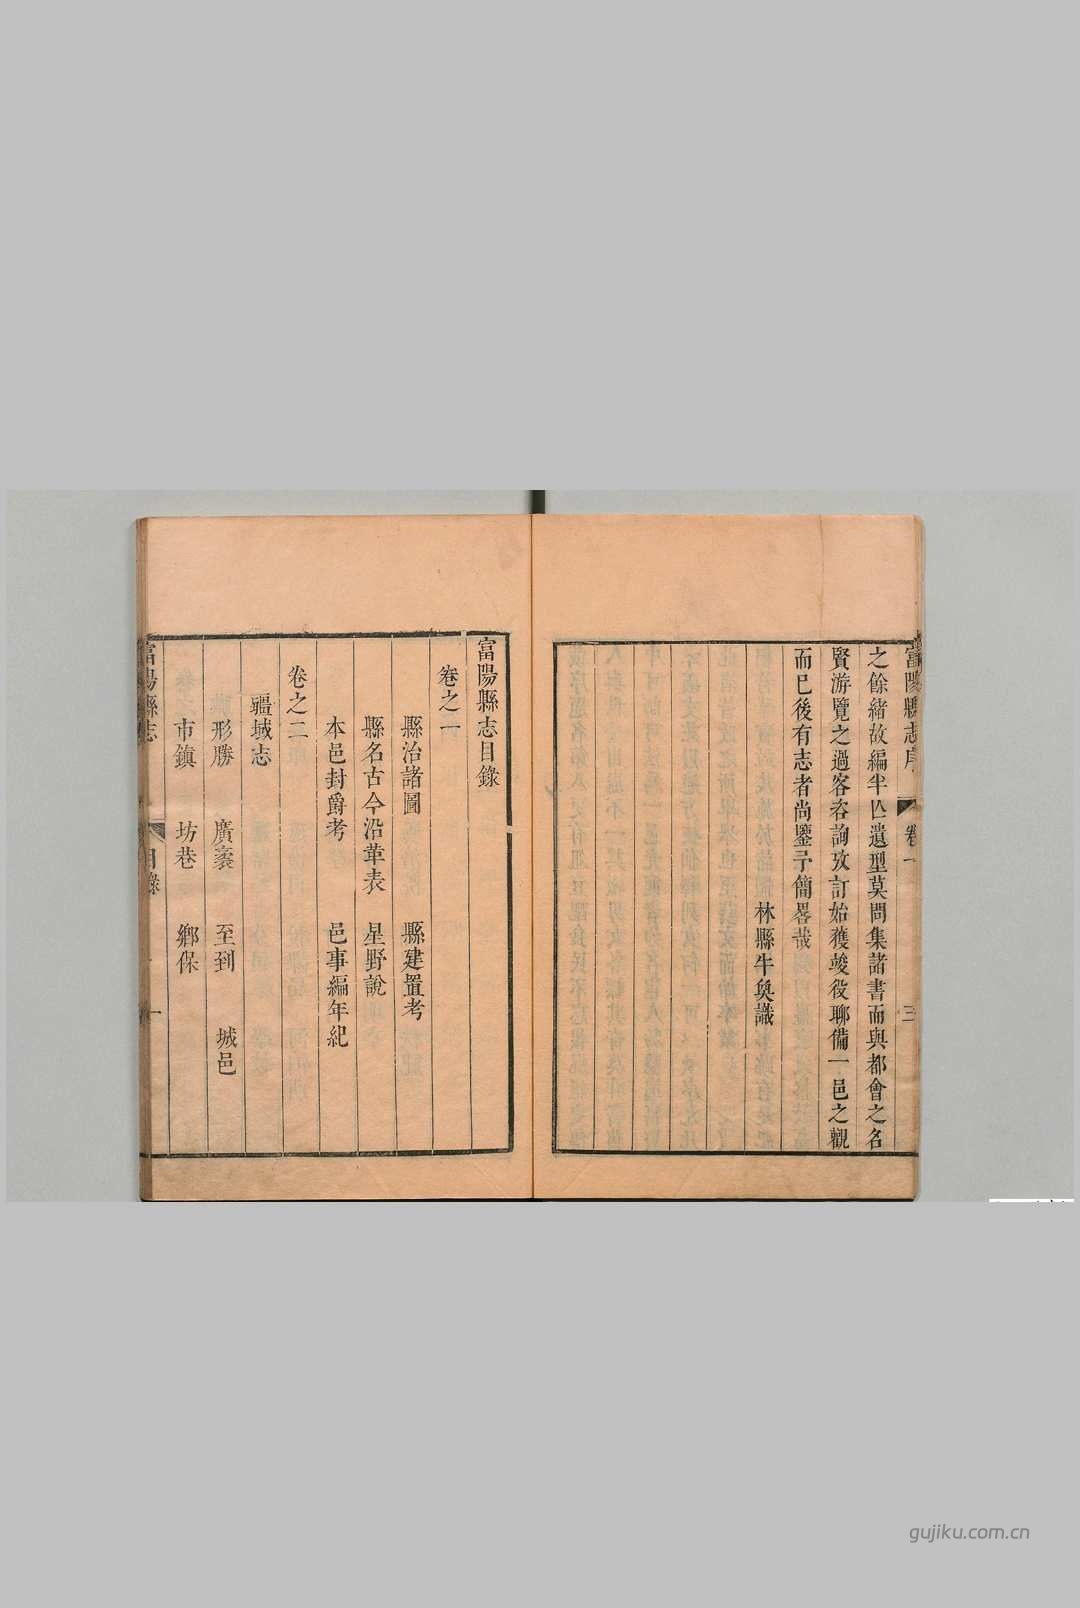 之餘緒故編半亾遺型莫問集諸書而與都會之名
賢游覽之過客咨詢攷訂始獲竣役聊備一邑之觀
而已後有志者尚鑒予簡畧哉
林縣牛奐識
富陽縣志序 卷一 三
富陽縣志目錄
卷之一
縣治諸圖 縣建置考
縣名古今沿革表 星野說
本邑封爵考 邑事編年紀
卷之二
疆域志
形勝 廣袤 至到 城邑
市鎮 坊巷 鄉保
富陽縣志 目錄 一
gujiku.com.cn